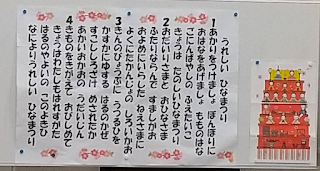 うれしいひなまつり
1 あかりをつけましょ ぼんぼりに
おはなをあげましょ もものはな
ごにんばやしの ふえたいこ
きょうは たのしいひなまつり
2 おだいりさまと おひなさま
ふたりならんで すましがお
およめにいらした ねえさまに
よくにたかんじょの しろいかお
3 きんのびょうぶに うつるひを
かすかにゆする はるのかぜ
すこししろざけ めされたか
あかいおかおの うだいじん
4 きものをきがえて おびしめて
きょうはわたしも はれすがた
はるのやよいの このよきひ
なによりうれしい ひなまつり